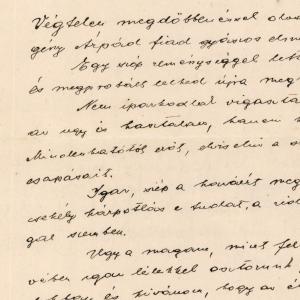 Végtelen megdöbbenéssel olvas
gény Árpád fiad gyászos elmu
Egy szép reménységgel lett
és megpróbált lelked újra meg
Nem iparkodlak vigasztal
az úgy is hasztalan, hanem
Mindenhatótól erőt, elviselni a s
csapásait.
Igaz, szép a hazáért meg
csekély kárpótlás e tudat, a rid
gal szemben.
Úgy a magam, mint fel
vében igaz lélekkel osztozunk
és kívánom, hogy az